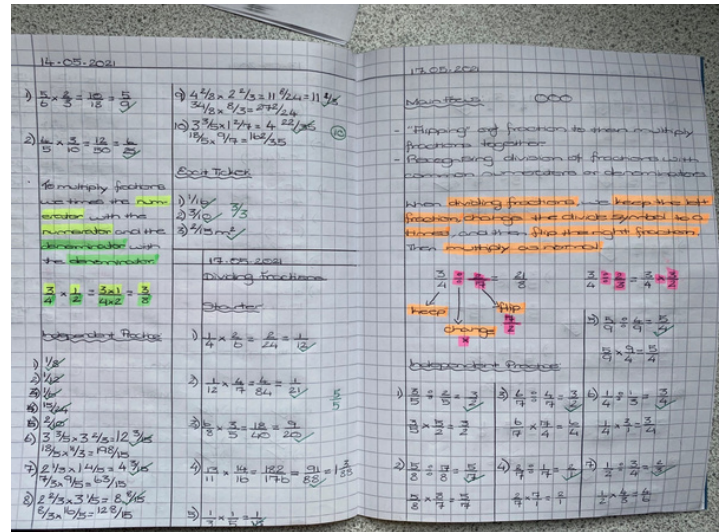 14.05.2021
1) 5/6 x 2/3 = 10/18 = 5/9
2) 4/5 x 3/10 = 12/50 = 6/25
To multiply fractions
we times the num-
erator with the
numerator and the
denominator with
the denominator.
3/4 x 1/2 = 3x1/4x2 = 3/8
Independent Practice
1) 1/8
2) 1/12
3) 1/6
4) 15/24
5) 2/10
6) 3 3/5 x 3 2/3 = 12 3/15
18/5 x 11/3 = 198/15
7) 2 1/3 x 1 4/5 = 4 3/15
7/3 x 9/5 = 63/15
8) 2 2/3 x 3 1/5 = 8 8/15
8/3 x 16/5 = 128/15
9) 4 2/8 x 2 2/3 = 11 8/24 = 11
34/8 x 8/3 = 272/24
10) 3 3/5 x 1 2/7 = 4 22/35
18/5 x 9/7 = 162/35
10
Exit Ticket
1) 1/16
2) 3/10
3) 2/15 m²
3/3
17.05.2021
Dividing Fractions
Starter
1) 1/4 x 2/6 = 2/24 = 1/12
2) 1/12 x 4/7 = 4/84 = 1/21
5/5
3) 6/8 x 3/5 = 18/40 = 9/20
4) 13/11 x 14/16 = 182/176 = 91/88 = 1 3/88
5) 1/3 x 1/5 = 1/15
17.05.2021
Main Focus
- "Flipping" of fraction to then multiply
fractions together
- Recognising division of fractions with
common numerators or denominators
When dividing fractions, we keep the left
fraction, change the divide symbol to a
times, and then flip the right fraction.
Then multiply as normal.
3/4 ÷ 2/7 = 21/8
keep
change
x
flip
7/2
3/4 ÷ 2/3 = 3/4 x 3/2
Independent Practice
1) 3/5 ÷ 2/5 = 3/2
3/5 x 5/2 = 3/2
2) 5/8 ÷ 7/8 = 5/7
5/8 x 8/7 = 5/7
3) 6/7 ÷ 4/7 = 3/2
6/7 x 7/4 = 6/4
4) 2/7 ÷ 1/7 = 2/1
2/7 x 7/1 = 2/1
5) 5/9 ÷ 4/9 = 5/4
5/9 x 9/4 = 5/4
6) 1/4 ÷ 1/3 = 3/4
1/4 x 3/1 = 3/4
7) 1/2 ÷ 3/4 =
1/2 x 4/3 = 4/6